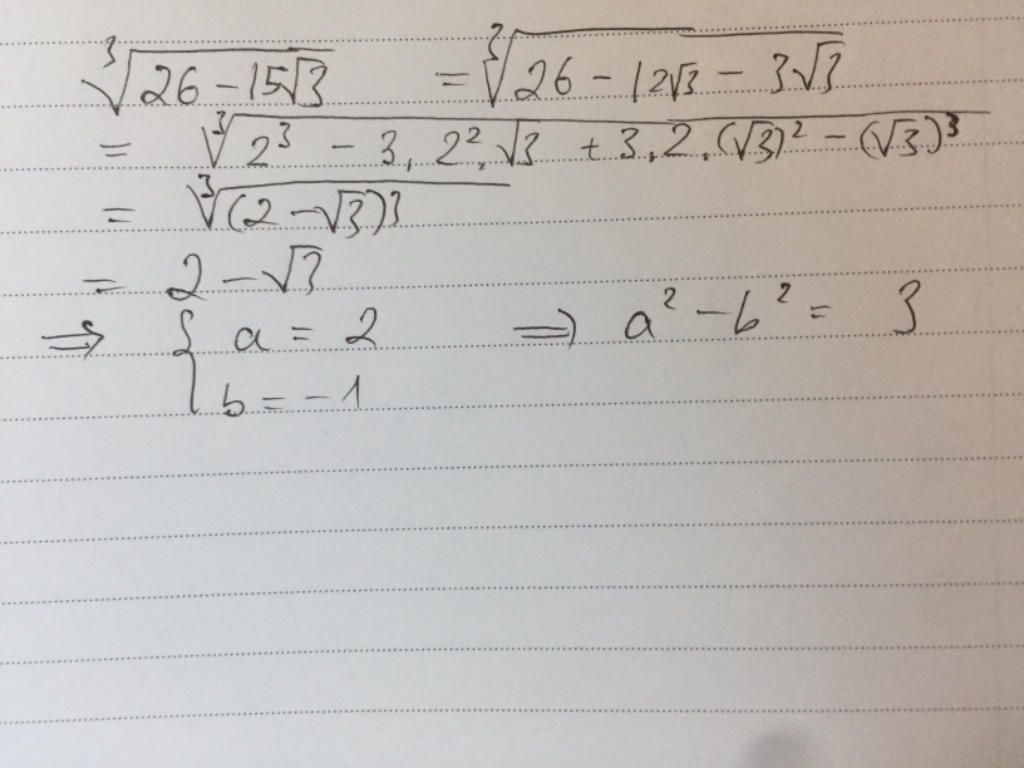 ∛(26 − 15√3) = ∛(26 − 12√3 − 3√3)
= ∛(2³ − 3.2².√3 + 3.2.(√3)² − (√3)³)
= ∛((2 − √3)³)
= 2 − √3
⇒ { a = 2 ⇒ a² − b² = 3
b = −1